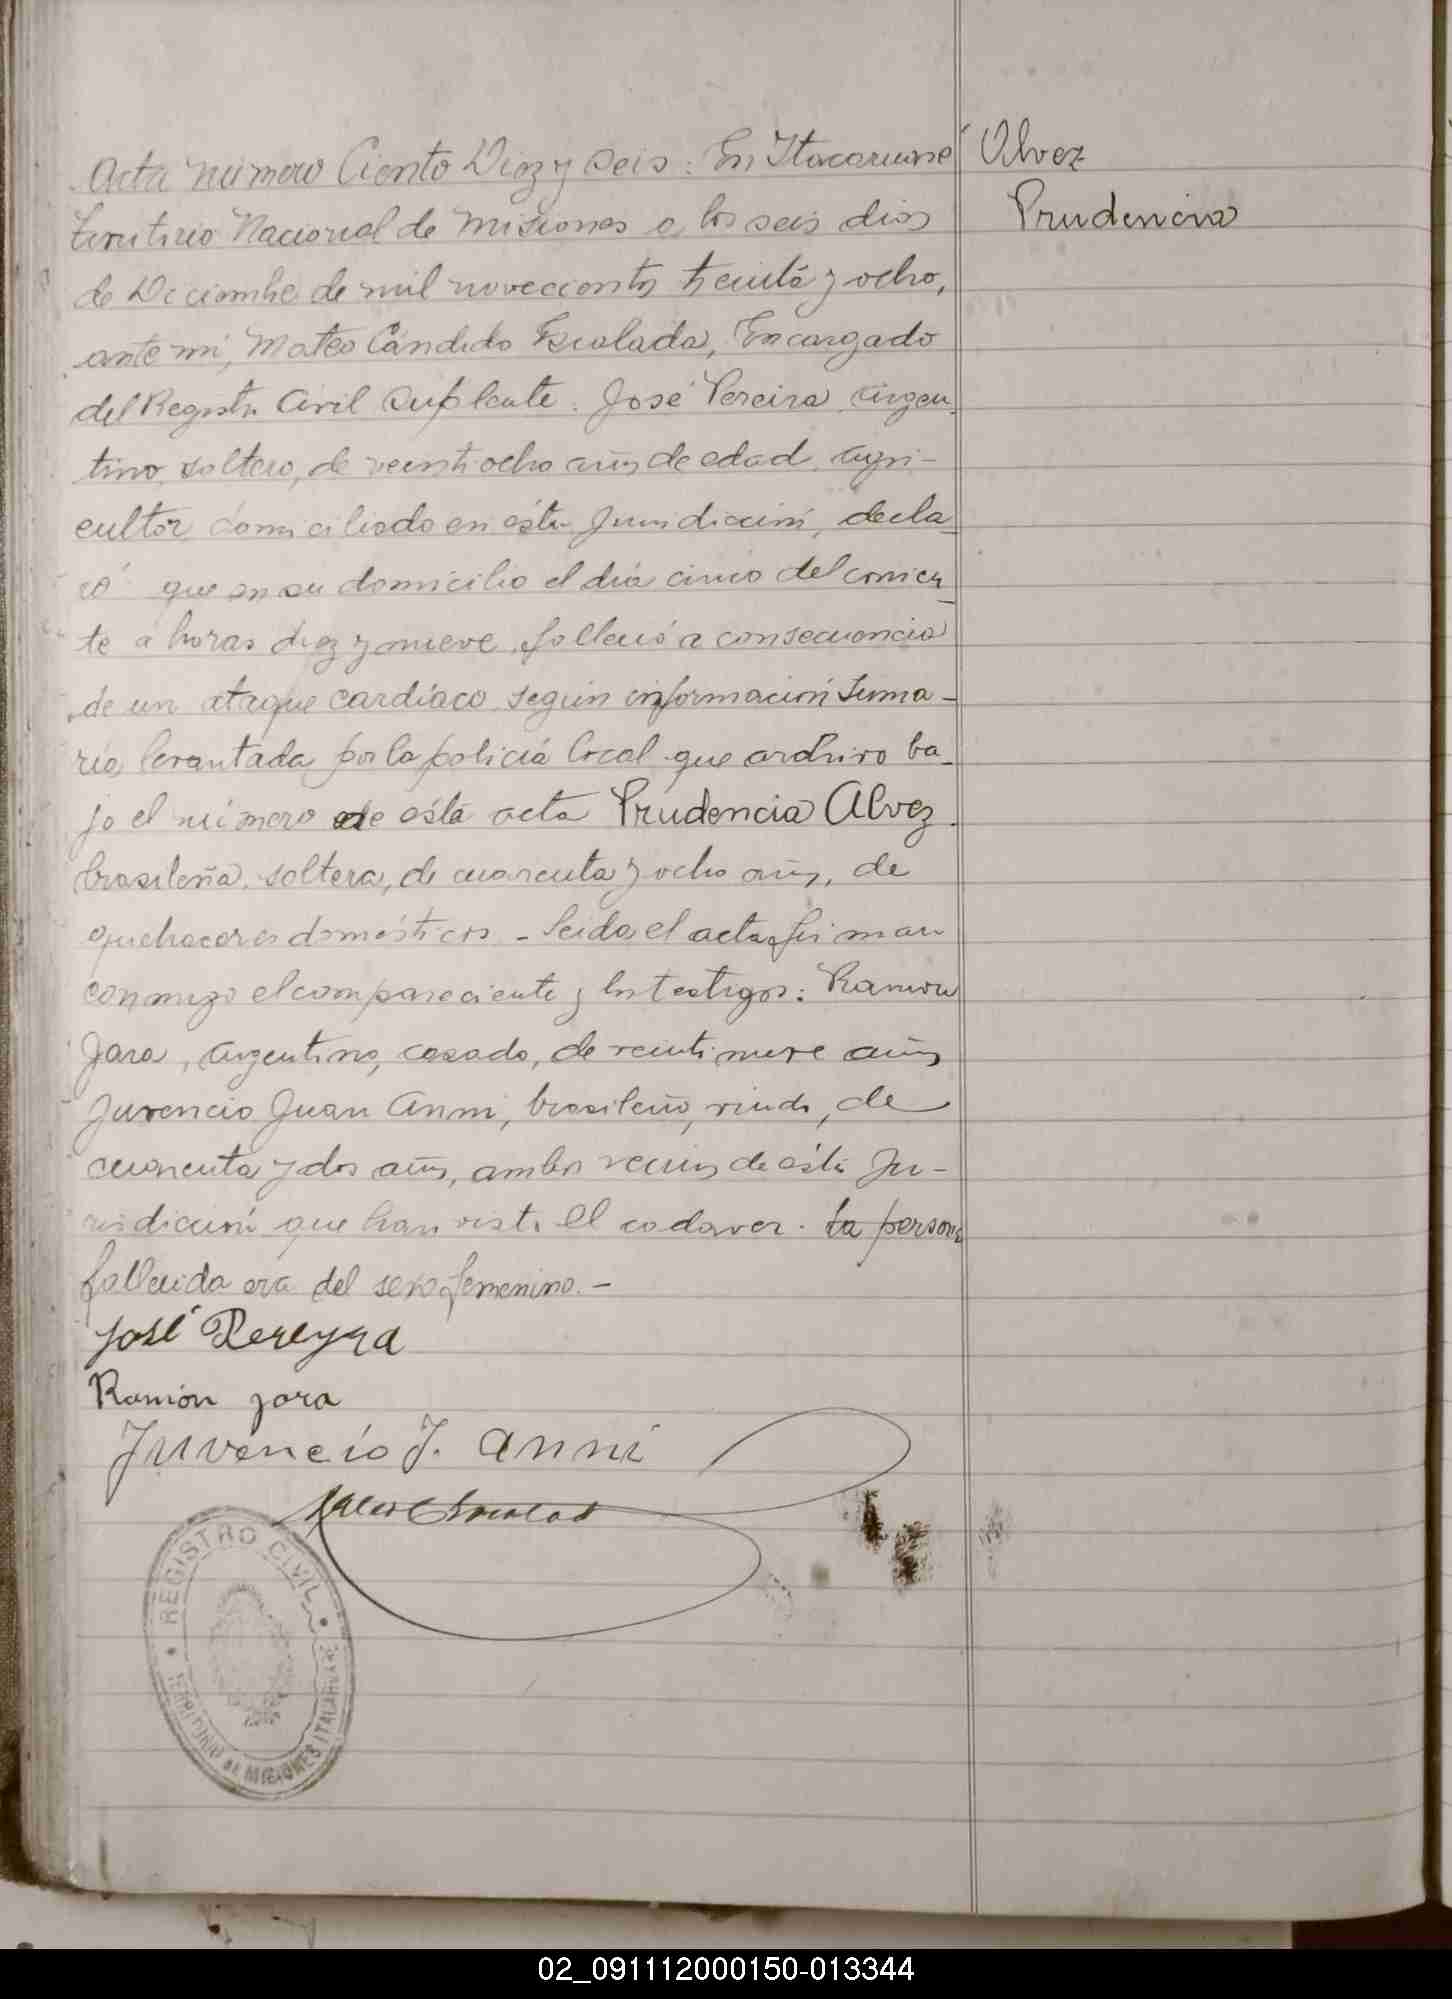 Acta número Ciento Diez y Seis: En Itacaruaré
Alvez
Prudencia
territorio Nacional de Misiones a los seis dias
de Diciembre de mil novecientos treinta y ocho,
ante mi, Mateo Cándido Escalada, Encargado
del Registro Civil Suplente: José Pereira, argen-
tino, soltero, de veintiocho años de edad, agri-
cultor, domiciliado en ésta Juridicción, decla-
ró que en su domicilio el día cinco del corrien-
te a horas diez y nueve, falleció a consecuencia
de un ataque cardíaco según información suma-
ria levantada por la policiá local que archivo ba-
jo el número de ésta acta Prudencia Alvez
brasileña, soltera, de cuarenta y ocho años, de
quehaceres domésticos. - Leida el acta, firman
conmigo el compareciente y los testigos: Ramon
Jara, argentino, casado, de veintinueve años
Juvencio Juan Anni, brasileño, viudo, de
cuarenta y dos años, ambos vecinos de ésta Ju-
ridicción que han visto el cadaver. La persona
fallecida era del sexo femenino. -
José Pereyra
Ramón jara
Juvencio J. Anni
REGISTRO CIVIL
TERRITORIO DE MISIONES ITACARUARÉ
02_091112000150-013344